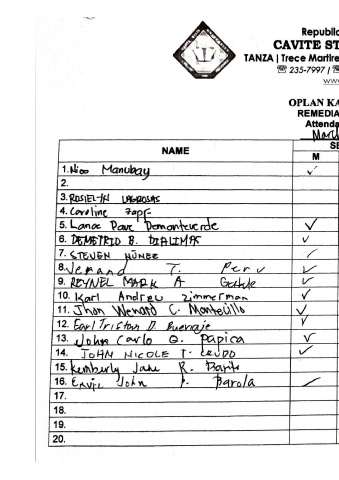 Republic
CAVITE ST
TANZA | Trece Martire
235-7997 |
www
OPLAN KA
REMEDIA
Attenda
March
SE
NAME
M
1. Nico Manubay ✓
2.
3. ROSIEL-IN LAGROSAS
4. Caroline Zapf
5. Lance Dave Demonteverde ✓
6. DEMETRIO B. DIALIMAS ✓
7. STEVEN NÚNEZ ✓
8. Jemand T. Peru ✓
9. REYNEL MARK A ✓
10. Karl Andreu Zimmerman ✓
11. Jhon Wenard C. Montecillo ✓
12. Earl Tristan D. Buenaje ✓
13. John Carlo O. Papica ✓
14. JOHN NICOLE T. ✓
15. Kimberly Jane R.
16. John P. Barola ✓
17.
18.
19.
20.